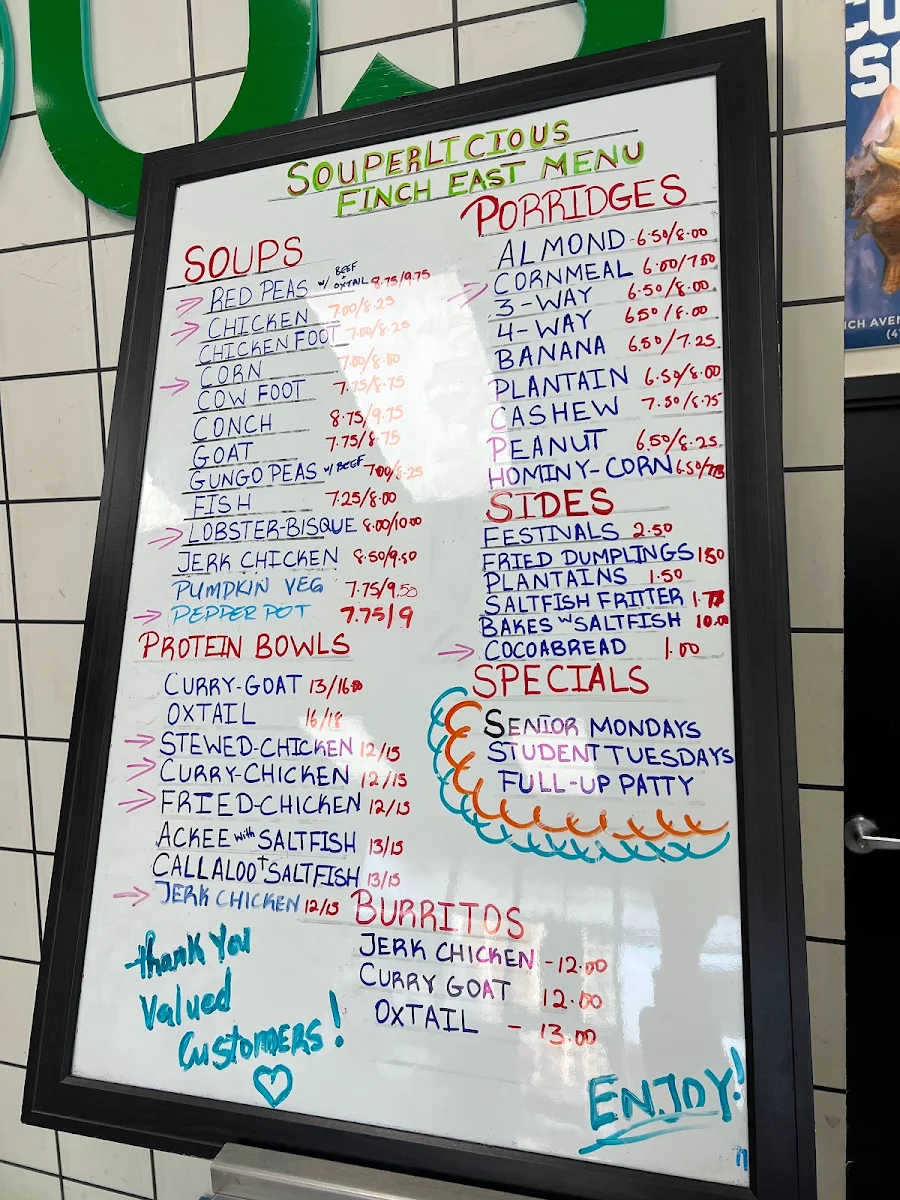 SOUPERLICIOUS
FINCH EAST MENU
SOUPS
RED PEAS w/ BEEF + OXTAIL 8.75/9.75
CHICKEN 7.00/8.25
CHICKEN FOOT 7.00/8.25
CORN 7.00/8.00
COW FOOT 7.75/8.75
CONCH 8.75/9.75
GOAT 7.75/8.75
GUNGO PEAS w/ BEEF 7.00/8.25
FISH 7.25/8.00
LOBSTER-BISQUE 8.00/10.00
JERK CHICKEN 8.50/9.50
PUMPKIN VEG 7.75/9.50
PEPPER POT 7.75/9
PROTEIN BOWLS
CURRY-GOAT 13/16.00
OXTAIL 16/18
STEWED-CHICKEN 12/15
CURRY-CHICKEN 12/15
FRIED-CHICKEN 12/15
ACKEE with SALTFISH 13/15
CALLALOO + SALTFISH 13/15
JERK CHICKEN 12/15
PORRIDGES
ALMOND - 6.50/8.00
CORNMEAL 6.00/7.50
3-WAY 6.50/8.00
4-WAY 6.50/8.00
BANANA 6.50/7.25
PLANTAIN 6.50/8.00
CASHEW 7.50/8.75
PEANUT 6.50/8.25
HOMINY-CORN 6.50/
SIDES
FESTIVALS 2.50
FRIED DUMPLINGS 1.50
PLANTAINS 1.50
SALTFISH FRITTER
BAKES w SALTFISH 10.00
COCOABREAD 1.00
SPECIALS
SENIOR MONDAYS
STUDENT TUESDAYS
FULL-UP PATTY
BURRITOS
JERK CHICKEN - 12.00
CURRY GOAT 12.00
OXTAIL - 13.00
Thank You
Valued
Customers!
ENJOY!